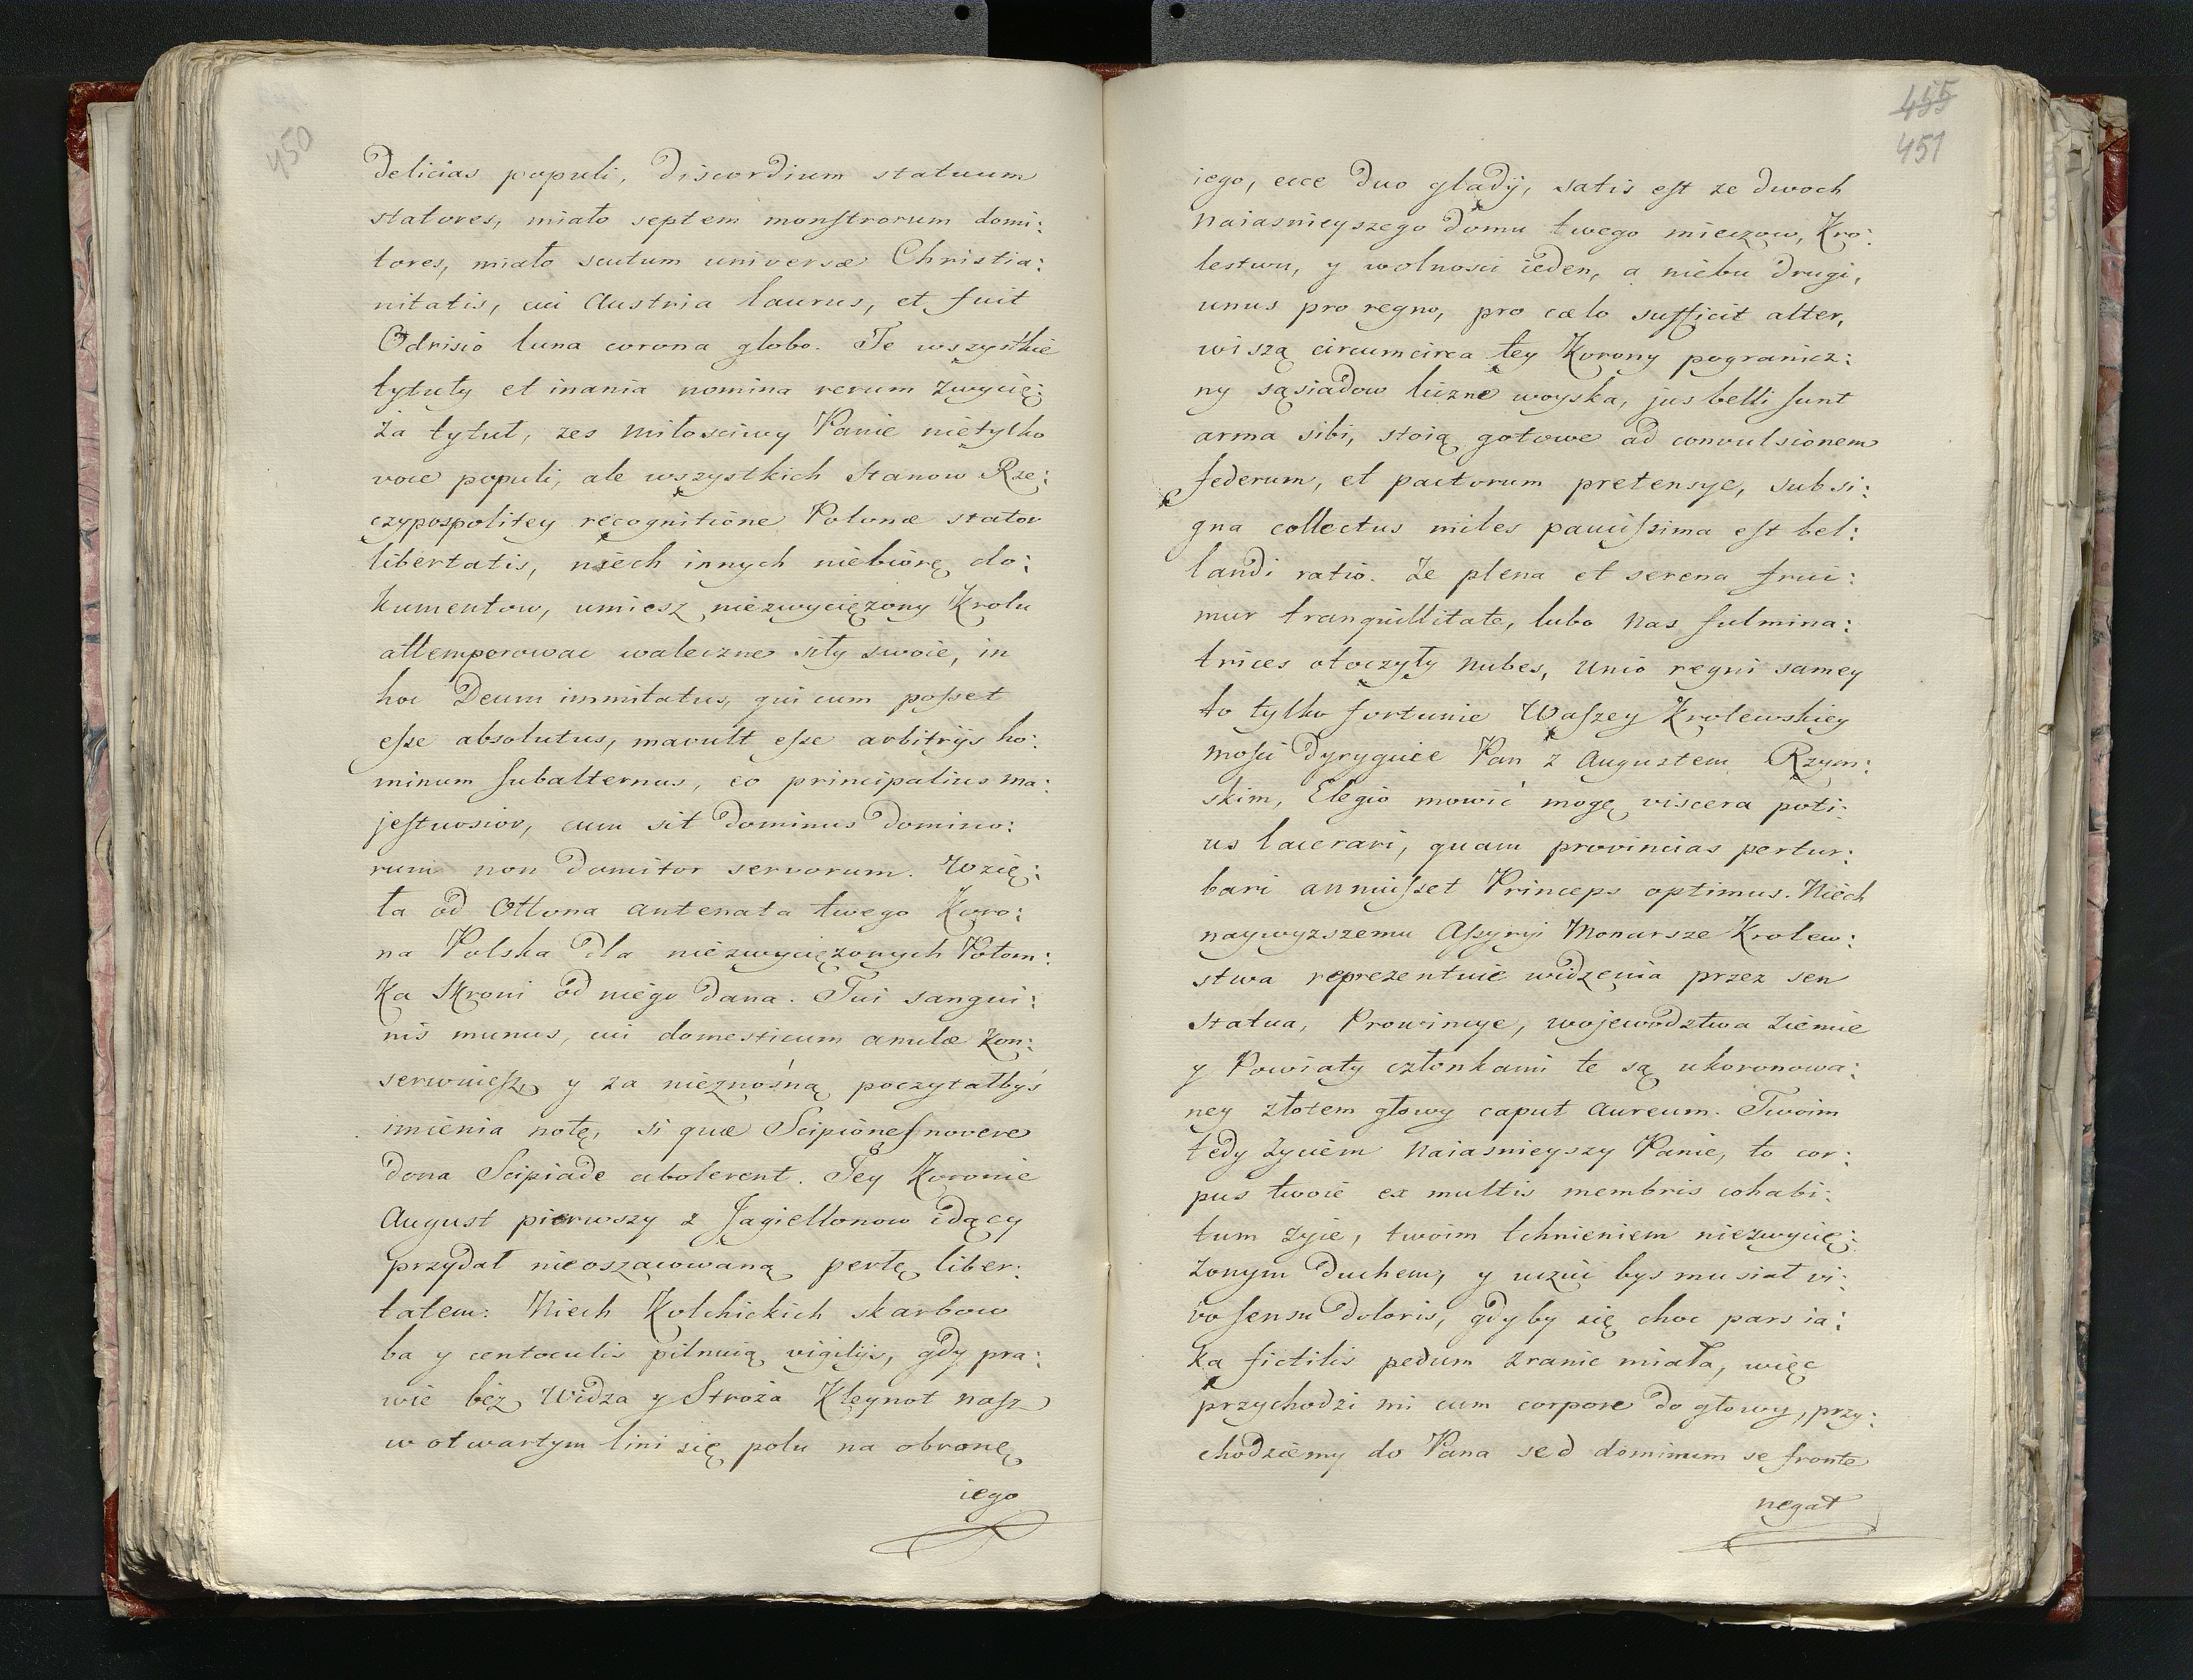 450
delicias populi, discordium statuum
statores, miało septem monstrorum domi:
tores, miało scutum universæ Christia:
nitatis, cui Austria laurus, et fuit
Odrisio luna corona globo. Te wszystkie
tytuły et inania nomina rerum zwycię:
ża tytuł, zes Miłosciwy Panie nietylko
voce populi, ale wszystkich Stanow Rze:
czypospolitey recognitione Polonæ stator
libertatis, niech innych niebiorę do:
kumentow, umiesz niezwyciężony Krolu
attemperowac waleczne siły swoie, in
hoc Deum immitatus, qui cum posset
esse absolutus, mavult esse arbitrijs ho:
minum subalternus, eo principalius ma:
jestuosior, cum sit Dominus Domino:
rum non Domitor servorum. Wzię:
ta od Ottona antenata twego Koro:
na Polska dla niezwyciężonych Potom:
ka Skroni od niego dana. Tui sangui:
nis munus, cui domesticum amulæ kon:
serwuiesz, y za nieznośną poczytałbyś
imienia notę, si quæ Scipiones novere
dona Scipiade abolerent. Tey Koronie
August pierwszy z Jagiellonow idący
przydał nieoszacowaną perłę liber:
tatem: Niech Kolchickich skarbow
ba y centoculis pilnuią vigilijs, gdy pra:
wie bez Widza y Stroża Kleynot nasz
w otwartym lini się polu na obronę
iego
455
451
iego, ecce duo gladij, satis est ze dwoch
Naiasnieyszego Domu twego mieczow, Kro:
lestwu, y wolnosci ieden, a niebu drugi,
unus pro regno, pro cælo sufficit alter,
wiszą circumcirca tey Korony pogranicz:
ny sąsiadow liczne woyska, jus belli sunt
arma sibi, stoią gotowe ad convulsionem
federum, et pactorum pretensye, sub si:
gna collectus miles paucissima est bel:
landi ratio. Ze plena et serena frui:
mur tranquillitate, lubo nas fulmina:
trices otoczyły nubes, Unio regni samey
to tylko fortunie Waszey Krolewskiey
mosci dyryguie Pan z Augustem Rzym:
skim, Elegio mowić mogę viscera poti:
us lacerari, quam provincias pertur:
bari annuisset Princeps optimus. Niech
naywyzszemu Assyryi Monarsze Krolew:
stwa reprezentuie widzenia przez sen
Statua, Prowincye, wojewodztwa Ziemie
y Powiaty członkami te są ukoronowa:
ney złotem głowy caput aureum. Twoim
tedy życiem Naiasnieyszy Panie, to cor:
pus twoie ex multis membris cohabi:
tum żyie, twoim tchnieniem niezwycię:
żonym Duchem, y uczuc bys musiał vi:
vo sensu doloris, gdyby się choc pars ia:
ka fictilis pedum zranic miała, więc
przychodzi mi cum corpore do głowy, przy:
chodziemy do Pana sed dominum se fronte
negat